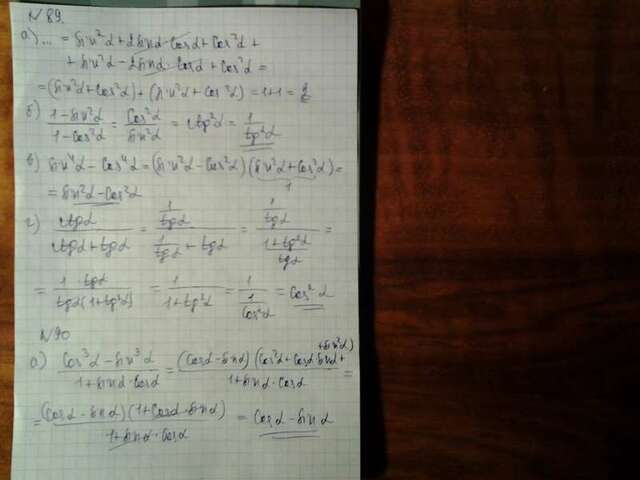 N 89.
а) ... = sin²α + 2sinα·cosα + cos²α +
+ sin²α − 2sinα·cosα + cos²α =
= (sin²α + cos²α) + (sin²α + cos²α) = 1+1 = 2
б) (1 − sin²α)/(1 − cos²α) = cos²α/sin²α = ctg²α = 1/tg²α
в) sin⁴α − cos⁴α = (sin²α − cos²α)(sin²α + cos²α) =
1
= sin²α − cos²α
г) ctgα/(ctgα + tgα) = (1/tgα)/(1/tgα + tgα) = (1/tgα)/((1+tg²α)/tgα) =
= (1·tgα)/(tgα(1+tg²α)) = 1/(1+tg²α) = 1/(1/cos²α) = cos²α
N 90
а) (cos³α − sin³α)/(1 + sinα·cosα) = (cosα − sinα)(cos²α + cosα·sinα + sin²α)/(1 + sinα·cosα) =
= (cosα − sinα)(1 + cosα·sinα)/(1 + sinα·cosα) = cosα − sinα